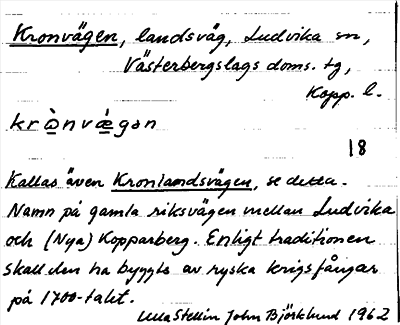 Kronvägen, landsväg, Ludvika sn,
Västerbergslags doms. tg,
Kopp. l.
krò̲nvǽ̲gən
18
Kallas även Kronlandsvägen, se detta.
Namn på gamla riksvägen mellan Ludvika
och (Nya) Kopparberg. Enligt traditionen
skall den ha byggts av ryska krigsfångar
på 1700-talet.
Ulla Stellin John Björklund 1962